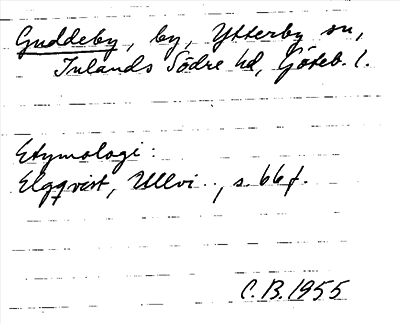 Guddeby, by, Ytterby sn,
Inlands Södre hd, Göteb. l.
Etymologi:
Elgqvist, Ullvi.., s. 66 f.
C. B. 1955